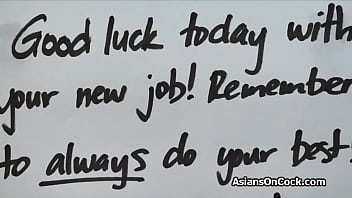 Good luck today with
your new job! Remember
to always do your best!
AsiansOnCock.com